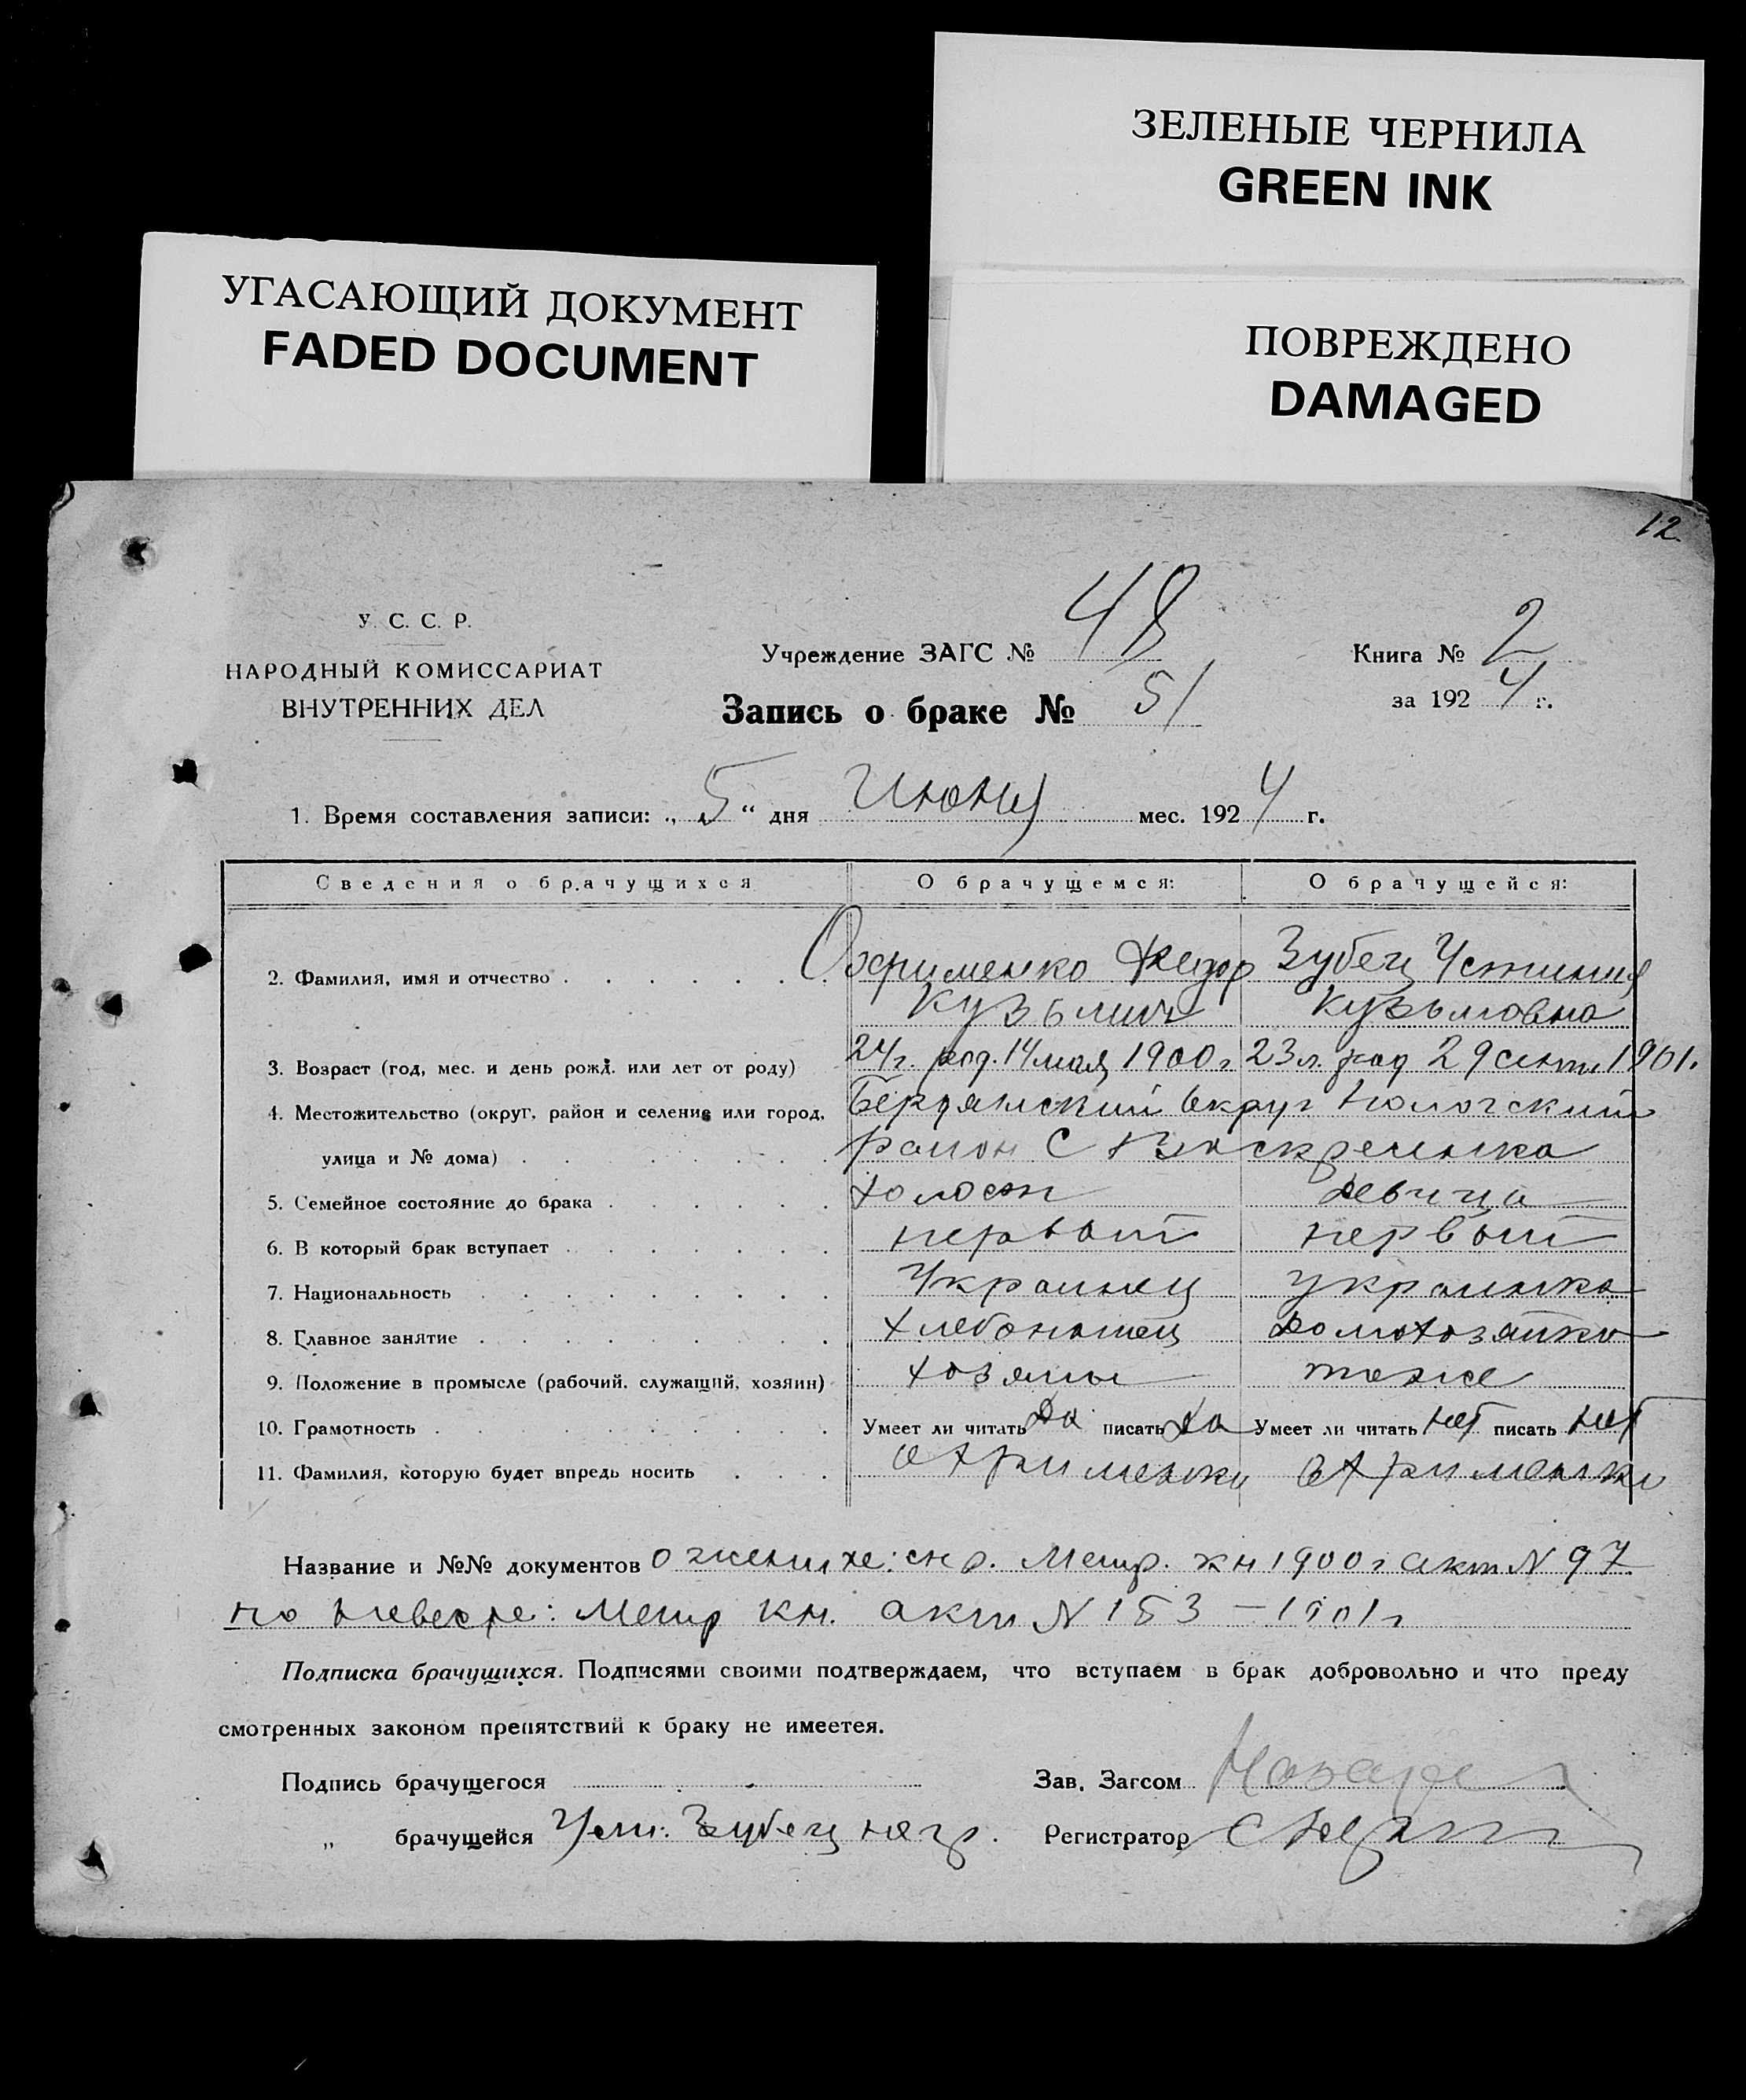 ЗЕЛЕНЫЕ ЧЕРНИЛА
GREEN INK
УГАСАЮЩИЙ ДОКУМЕНТ
FADED DOCUMENT
ПОВРЕЖДЕНО
DAMAGED
12.
У. С. С. Р.
НАРОДНЫЙ КОМИССАРИАТ
ВНУТРЕННИХ ДЕЛ
Учреждение ЗАГС № 48
Запись о браке № 51
Книга № 2
за 1924 г.
1. Время составления записи: „ 5 “ дня Июня мес. 1924 г.
Сведения о брачущихся О брачущемся: О брачущейся:
2. Фамилия, имя и отчество Охрименко Федор Зубец Устиния
Кузьмич Кузьмовна
3. Возраст (год, мес. и день рожд. или лет от роду) 24 г. род. 14 мая 1900 г 23 л. род 29 сент. 1901.
4. Местожительство (округ, район и селение или город, Бердянский округ Пологский
улица и № дома) район С Воскресенка
5. Семейное состояние до брака холост девица
6. В который брак вступает первый первый
7. Национальность Украинец украинка
8. Главное занятие хлебопашец домохозяйка
9. Положение в промысле (рабочий, служащий, хозяин) хозяин тоже
10. Грамотность Умеет ли читать да писать да Умеет ли читать нет писать нет
11. Фамилия, которую будет впредь носить Охрименко Охрименко
Название и №№ документов о женихе: Метр. кн 1900 г акт N 97
по невесте: Метр кн. акт N 153 – 1901 г
Подписка брачущихся. Подписями своими подтверждаем, что вступаем в брак добровольно и что преду
смотренных законом препятствий к браку не имеется.
Подпись брачущегося Зав. Загсом
„ брачущейся Уст. Зубец негр. Регистратор